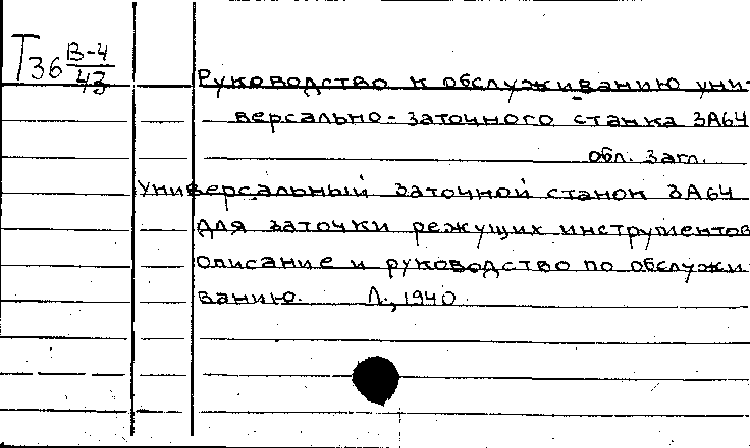 Т36 В-4/43
Руководство к обслуживанию уни-
версально-заточного станка 3А64
обл. загл.
Универсальный заточной станок 3А64
для заточки режущих инструментов
описание и руководство по обслужи-
ванию. Л., 1940